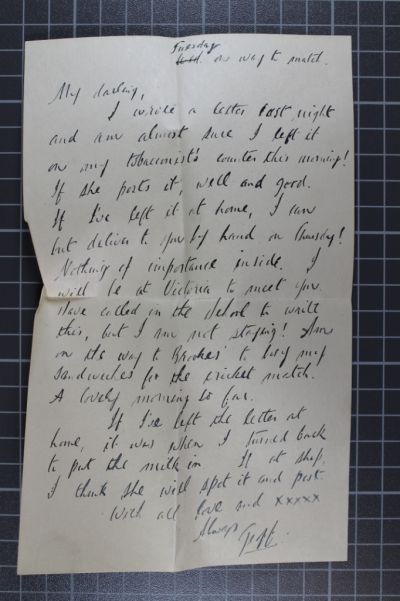 Tuesday
on way to match.
My darling,
I wrote a letter last night
and am almost sure I left it
on my tobacconist's counter this morning!
If she posts it, well and good.
If I've left it at home, I can
but deliver to you by hand on Thursday!
Nothing of importance inside. I
will be at Victoria to meet you.
Have called in the to write
this, but I am not staying! Am
on the way to to buy my
sandwiches for the cricket match.
A lovely morning so far.
If I've left the letter at
home, it was when I turned back
to put the milk in. If at shop,
I think she will spot it and post.
With all love and xxxxx
Always